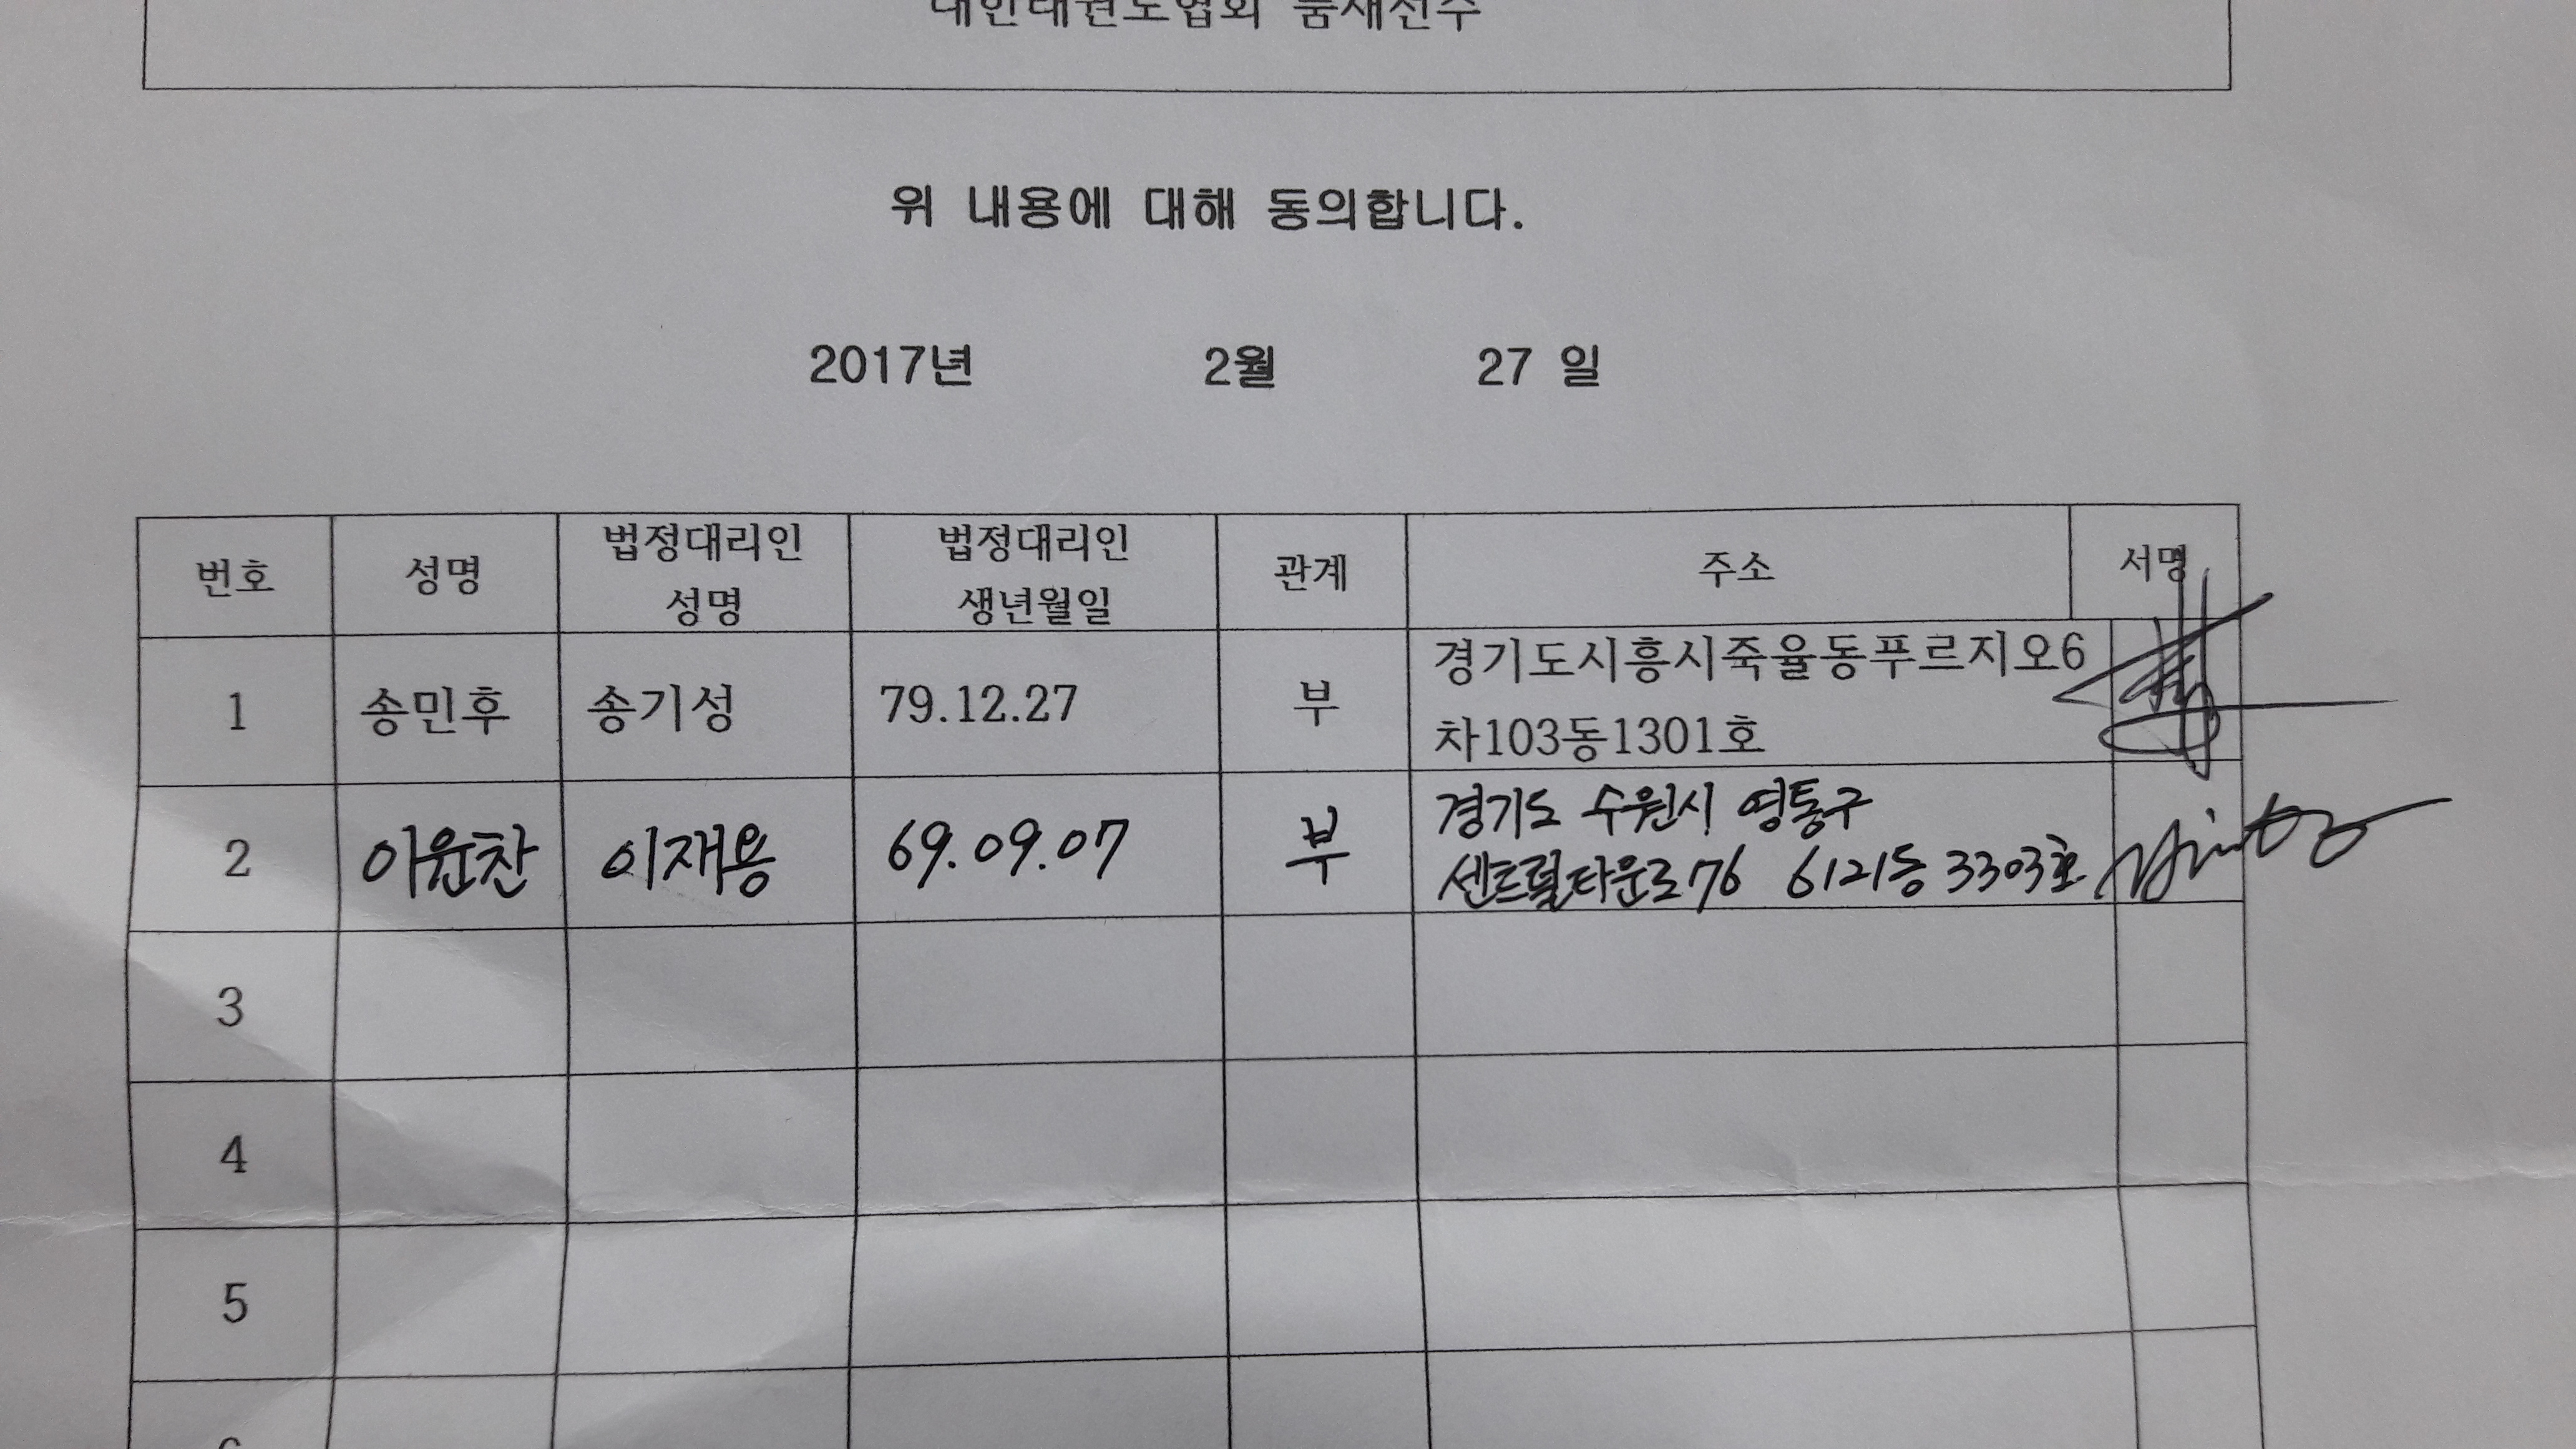 대한태권도협회 품새선수
위 내용에 대해 동의합니다.
2017년 2월 27 일
번호 성명 법정대리인 성명 법정대리인 생년월일 관계 주소 서명
1 송민후 송기성 79.12.27 부 경기도시흥시죽율동푸르지오6
차103동1301호
2 이윤찬 이재용 69.09.07 부 경기도 수원시 영통구
센트럴타운로76 6121동 3303호
3
4
5